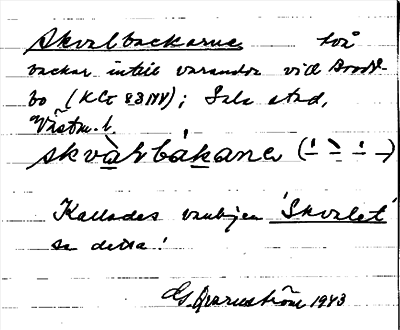 Skvalbackarne två
backar intill varandra vid Brodd-
bo (KG 83NV); Sala stad,
Västm. l.
skvàlbákane (– – – –)
Kallades vanligen 'Skvalet'
se detta!
G. Qvarnström 1943